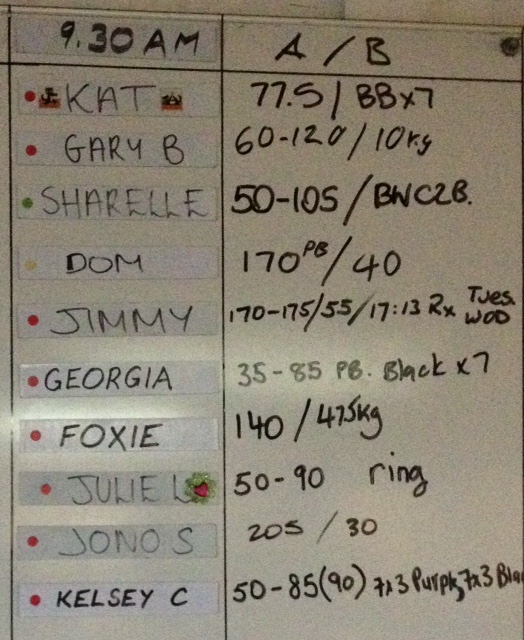 9.30 AM A / B
KAT 77.5 / BBx7
GARY B 60-120 / 10kg
SHARELLE 50-105 / BWC2B.
DOM 170 PB / 40
JIMMY 170-175/55/17:13 Rx Tues. WOD
GEORGIA 35-85 PB. Black x7
FOXIE 140 / 47.5kg
JULIE L 50-90 ring
JONO S 205 / 30
KELSEY C 50-85(90) 7x3 Purple, 7x3 Blac